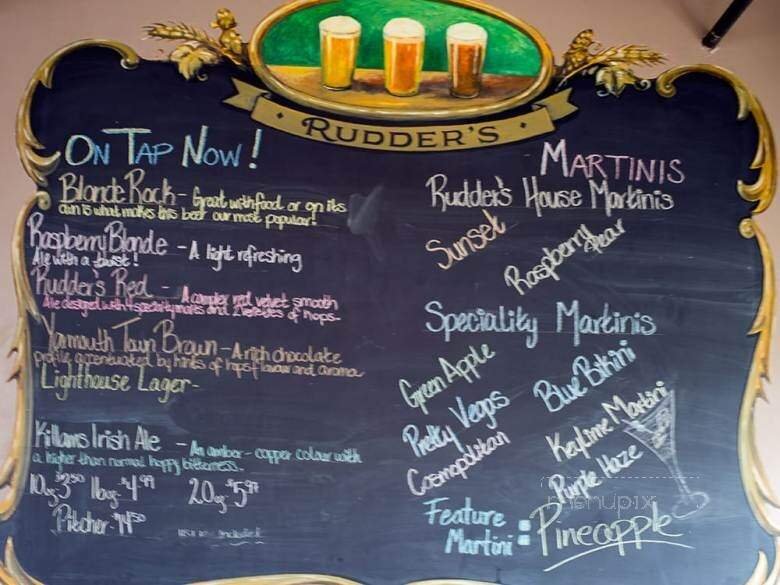 RUDDER'S
ON TAP NOW!
Blonde Rock - Great with food or on its
own is what makes this beer our most popular!
Raspberry Blonde - A light refreshing
Ale with a twist!
Rudder's Red - A complex red velvet smooth
Ale designed with 4 specialty malts and 2 varieties of hops-
Yarmouth Town Brown - A rich chocolate
profile accentuated by hints of hops flavour and aroma
Lighthouse Lager -
Killams Irish Ale - An amber - copper colour with
a higher than normal hoppy bitterness.
10oz $3.50 16oz - $4.99 20oz $5.99
Pitcher - $14.50
included
MARTINIS
Rudder's House Martinis
Sunset
Raspberry Pear
Speciality Martinis
Green Apple
Blue Bikini
Pretty Vegas
Keylime Martini
Cosmopolitan
Purple Haze
menupix
Feature
Martini: Pineapple